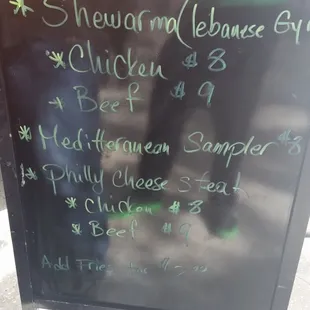 * Shewarma (lebanese Gy
* Chicken $8
* Beef $9
* Meditteranean Sampler $8
* Philly Cheese Steak
* Chicken $8
* Beef $9
Add Fries